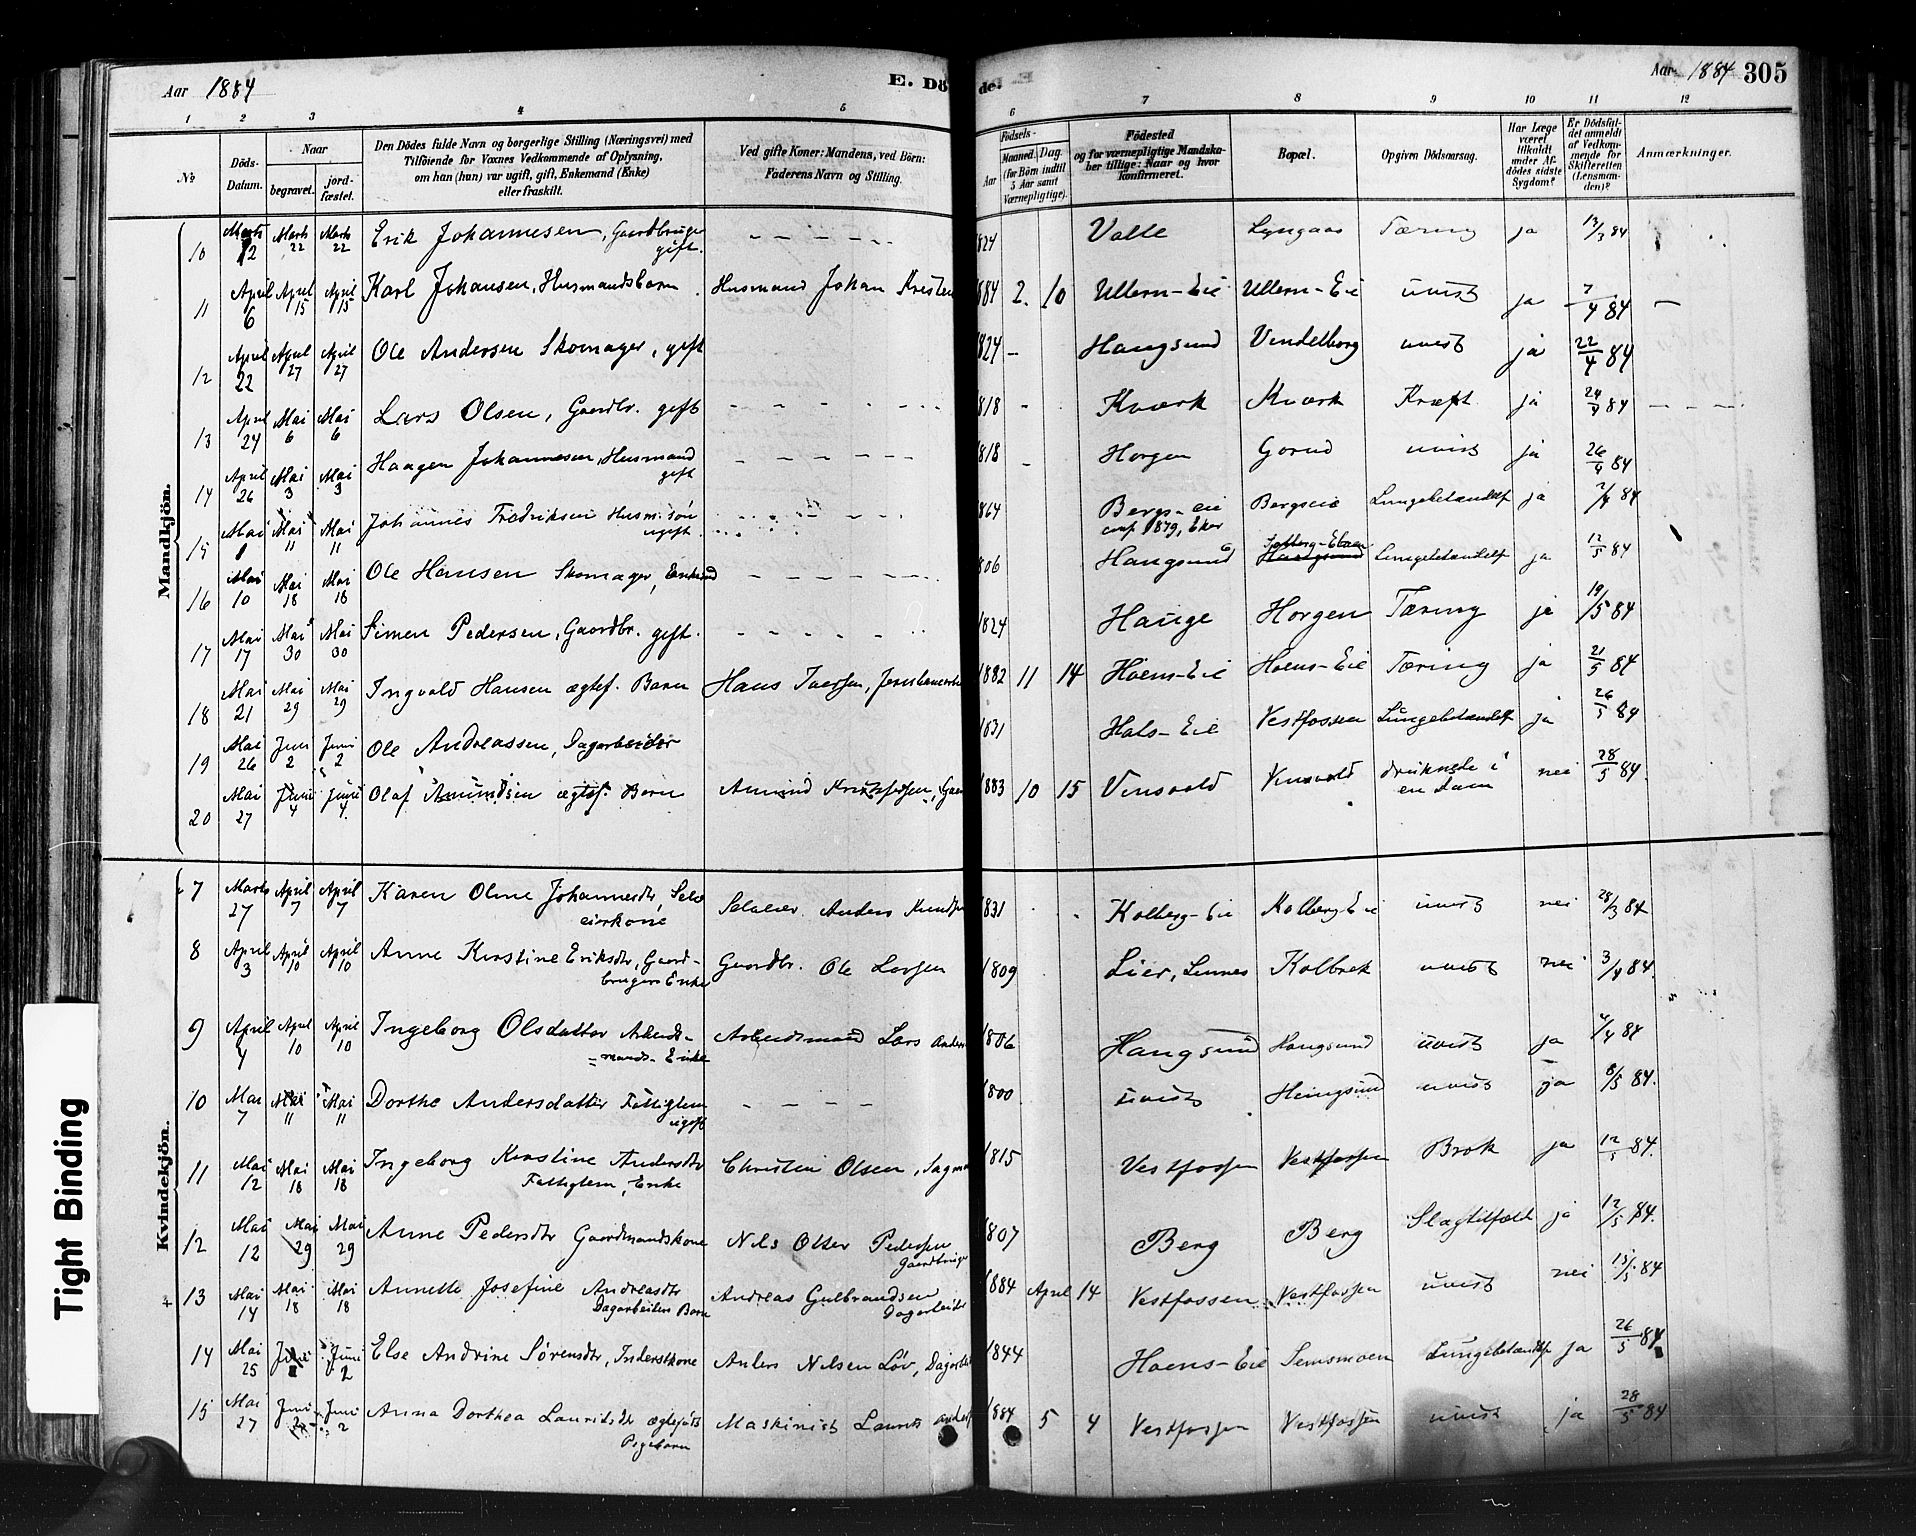 Aar 1884
E. Dö
de.
Aar 1884 305
1 2 3 4 5 6 7 8 9 10 11 12
No Döds-Datum. Naar begravet. jord-fæstet. Den Dödes fulde Navn og borgerlige Stilling (Næringsvei) med Tilföiende for Voxnes Vedkommende af Oplysning, om han (hun) var ugift, gift, Enkemand (Enke) eller fraskilt. Ved gifte Koner: Mandens, ved Börn: Faderens Navn og Stilling. Födsels- Aar Maaned. Dag. (for Börn indtil 5 Aar samt Værnepligtige). Födested og for værnepligtige Mandska-ber tillige: Naar og hvor konfirmeret. Bopæl. Opgiven Dödsaarsag. Har Læge været tilkaldt under Af-dödes sidste Sygdom? Er Dödsfal-det anmeldt af Vedkom-mende for Skifteretten (Lensman-den)? Anmærkninger.
Mandkjön.
10 Marts 12 Marts 22 Marts 22 Erik Johannesen, Gaardbruger gift. - - - - - 1824 Valle Lyngaas Tæring ja 13/3 84
11 April 6 April 15 April 15 Karl Johansen, Husmandsbarn Husmand Johan 1884 2. 10 Ullern-Eie Ullern-Eie uvist ja 7/4 84 -
12 April 22 April 27 April 27 Ole Andersen Skomager, gift 1824 - Haugsund Vendelborg uvist ja 22/4 84
13 April 24 Mai 6 Mai 6 Lars Olsen, Gaardbr. gift - - - - - 1818 - Kværk Kværk Kræft ja 24/4 84 - - - -
14 April 26 Mai 3 Mai 3 Haagen Johannesen, Husmand gift - - - - - 1818 - Horgen Gorud uvist ja 26/4 84
15 Mai 1 Mai 11 Mai 11 Johannes Fredriksen Husm. sön ugift. - - - - - 1864 Bergs-eie conf. 1879, Eker Bergseie Lungebetændelse ja 2/4 84
16 Mai 10 Mai 18 Mai 18 Ole Hansen Skomager, Enkemand - - - - - 1806 Haugsund Haugsund Lungebetændelse ja 12/5 84
17 Mai 17 Mai 30 Mai 30 Simen Pedersen, Gaardbr. gift. - - - - - 1824 Hauge Horgen Tæring ja 19/5 84
18 Mai 21 Mai 29 Mai 29 Ingvald Hansen ægtef. Barn Hans Iversen, 1882 11 14 Hoens-Eie Hoens-Eie Tæring ja 21/5 84
19 Mai 26 Juni 2 Juni 2 Ole Andreassen, Dagarbeider 1831 Hals-Eie Vestfossen Lungebetændelse ja 26/5 84
20 Mai 27 Juni 4 Juni 4. Olaf Amundsen ægtef. Barn Amund 1883 10 15 Vinsvold druknede i en Dam nei 28/5 84.
Kvindekjön.
7 Marts 27 April 7 April 7 Karen Oline Johannesdtr, Selveierkone Selveier Anders Knudsen 1831 Kolberg-Eie Kolberg-Eie uvist nei 28/3 84
8 April 3 April 10 April 10 Anne Kirstine Eriksdtr, Gaard-brugers Enke Gaardbr. Ole Larsen 1809 Lier, Linnes Kolbrek uvist nei 3/4 84.
9 April 4 April 10 April 10 Ingeborg Olsdatter Arbeids-mands-Enke Arbeidsmand Lars Anders 1806 Haugsund Haugsund uvist ja 4/4 84
10 Mai 7 Mai 11 Mai 11 Dorthe Andersdatter Fattiglem ugift - - - - 1800 uvist Haugsund uvist ja 8/5 84.
11 Mai 12 Mai 18 Mai 18 Ingeborg Kirstine Andersdtr Fattiglem, Enke Christen Olsen, 1815 Vestfossen Vestfossen Brok ja 12/5 84.
12 Mai 12 Mai 29 Mai 29 Anne Pedersdtr Gaardmandskone Nils Olser Pedersen Gaardbruger 1807 Berg Berg Slagtilfælde ja 12/5 84.
13 Mai 14 Mai 18 Mai 18 Annette Josefine Andreasdtr Dagarbeiders Barn Andreas Gulbrandsen Dagarbeider 1884 April 14 Vestfossen Vestfossen uvist nei 15/5 84
14 Mai 25 Juni Juni 2 Else Andrine Sörensdtr, Inderstkone Anders Nilsen Löv, Dagarb 1844 Hoens-Eie Semsmoen Lungebetændelse ja 26/5 84
15 Mai 27 Juni 2 Juni 2 Anna Dorthea Lauritsdtr ægtefödt Pigebarn Maskinist Laurits Anders 1884 5 4 Vestfossen Vestfossen uvist ja 28/5 84
Tight Binding